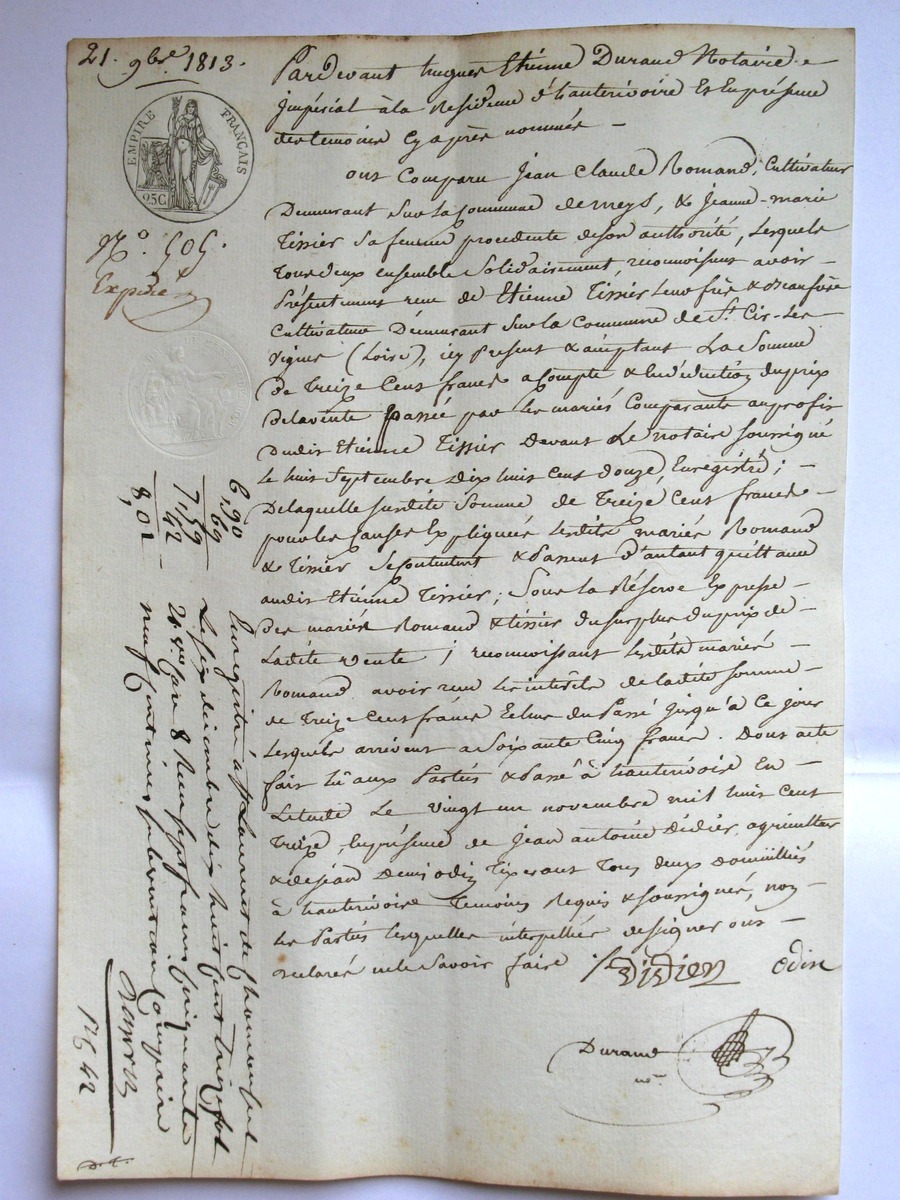 21. 9bre 1813.
EMPIRE FRANÇAIS
25C
N.o 505.
Expédié
Pardevant hugues Etiénne Durand Notaire
impérial à la Residence d'hauterivoire Et En présence
des temoins Cy après nommés —
ont Comparu Jean Claude Romand, Cultivateur
Demeurant Sur la Commune de meys, & Jeanne-marie
Tissier Sa femme procedente de son authorité, Lesquels
tous deux ensemble Solidairement, reconnoissent avoir —
Présentement reçu de Etienne Tissier Leur frère & Beaufrère
Cultivateur Demeurant Sur la Commune de St. Cir-Les-
Vignes (Loire), icy Présent & acceptant La Somme
De Treize Cent francs a Compte & En déduction du prix
De la vente passée par les mariés Comparants au profit
Dudit Etiénne Tissier devant Le notaire Soussigné
Le huit Septembre Dix huit Cent douze, Enregistré; —
De laquelle Susdite Somme de Treize Cent francs —
pour les Causes Expliquées lesdits mariés Romand
& Tissier Se Contentent & Passent d'autant quittance
audit Etiénne Tissier; Sous la Réserve Expresse —
Des mariés Romand & tissier du surplus du prix de —
Ladite vente; reconnoissant lesdits mariés —
Romand avoir reçu les intérêts de ladite somme —
de Treize Cent francs Echus du Passé jusqu'à Ce jour
Lesquels arrivent a Soixante Cinq francs. Dont acte
fait lû aux Parties & Passé à hauterivoire En —
Letude Le vingt un novembre mil huit Cent
Treize, En présence de Jean antoine Didier, agriculteur
& de jean Denis odin Tixerant Tous deux Domiciliés
à hauterivoire Temoins Requis & Soussignés, non —
Les Parties lesquelles interpellées de signer ont —
declarés ne le Savoir faire
Didier Odin
Durand
nre
6,90
69
7,59
42
8,01
Enregistré à St Laurent de Chamousset
Le six décembre dix huit cent treize fol
21 vo Case 8 Reçu six francs quatre vingt
neuf centimes subvention comprise